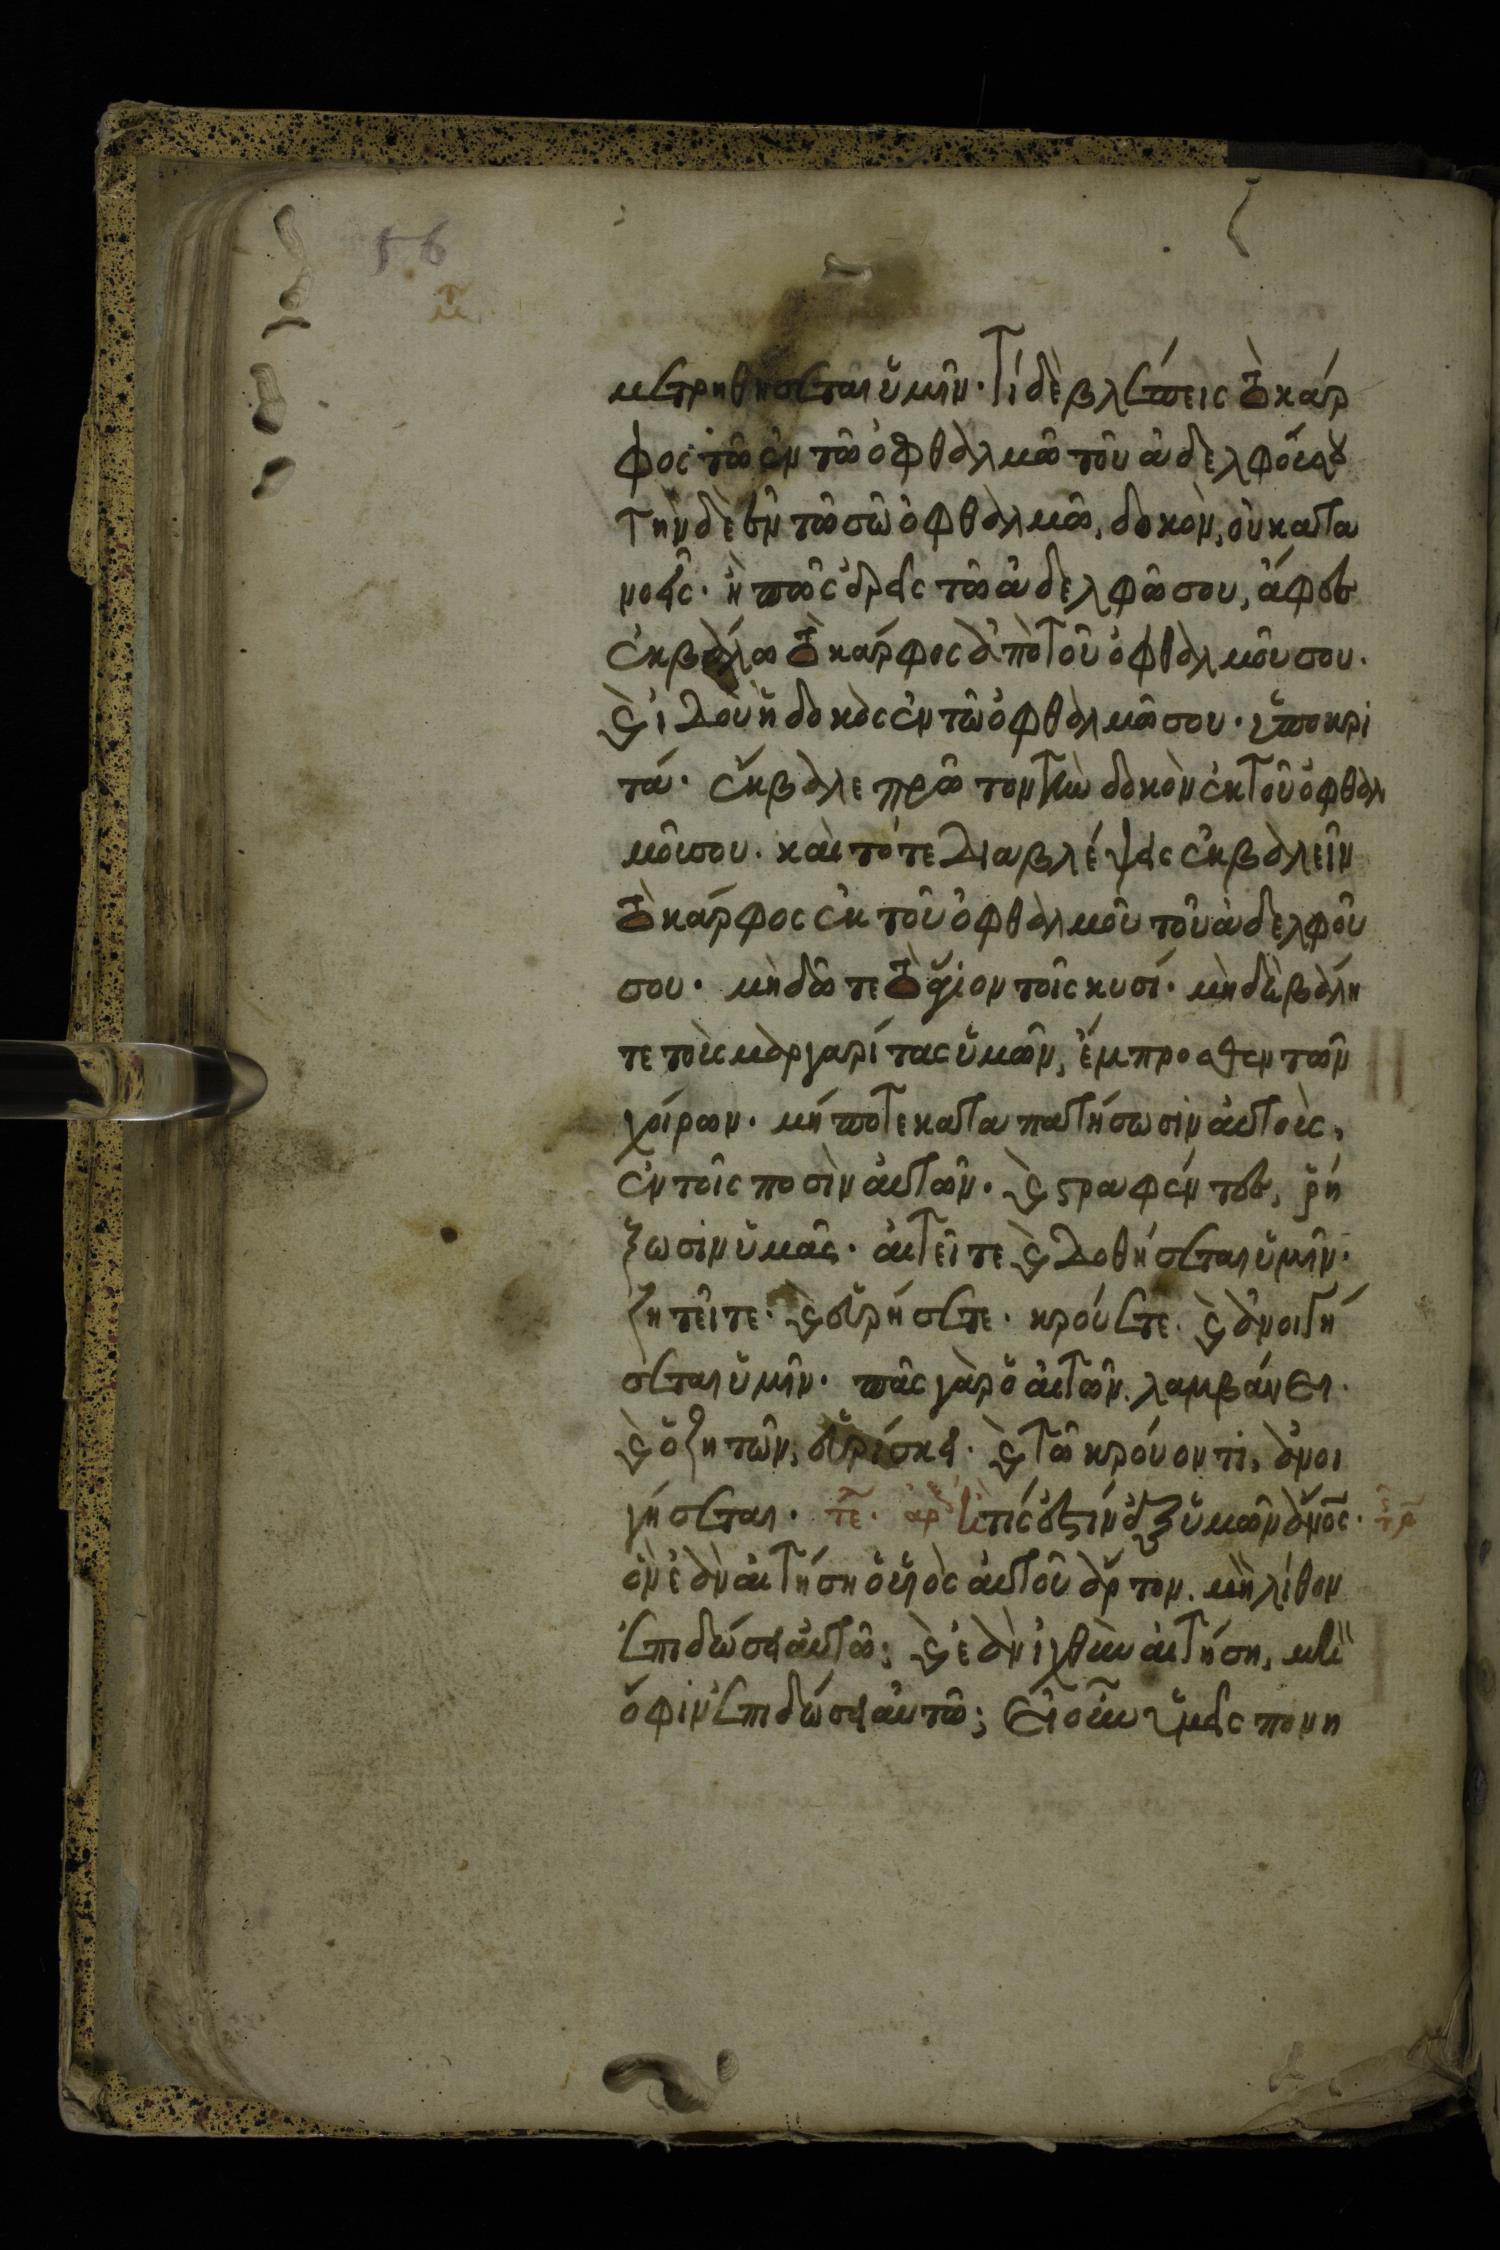 56
μετρηθήσεται ὑμῖν· Τί δὲ βλέπεις τὸ κάρ
φος τῶ ἐν τῶ ὀφθαλμῶ τοῦ ἀδελφοῦ σου
τὴν δὲ ἐν τῶ σῶ ὀφθαλμῶ, δοκὸν, οὐ κατα
νοεῖς· ἢ πῶς ἐρεῖς τῶ ἀδελφῶ σου, ἄφες
ἐκβάλω τὸ κάρφος ἀπὸ τοῦ ὀφθαλμοῦ σου·
ϗ ἰδοὺ ἡ δοκὸς ἐν τῶ ὀφθαλμῶ σου· ὑποκρι
τά· ἔκβαλε πρῶτον τὴν δοκὸν ἐκ τοῦ ὀφθαλ
μοῦ σου· καὶ τότε διαβλέψεις ἐκβαλεῖν
τὸ κάρφος ἐκ τοῦ ὀφθαλμοῦ τοῦ ἀδελφοῦ
σου· μὴ δῶτε τὸ ἅγιον τοῖς κυσί· μὴ δὲ βάλη
τε τοὺς μαργαρίτας ὑμῶν, ἔμπροσθεν τῶν
χοίρων· μήποτε καταπατήσωσιν αὐτοὺς,
ἐν τοῖς ποσὶν αὐτῶν· ϗ στραφέντες, ῥή
ξωσιν ὑμᾶς· αἰτεῖτε ϗ δοθήσεται ὑμῖν·
ζητεῖτε· ϗ εὑρήσετε· κρούετε· ϗ ἀνοιγή
σεται ὑμῖν· πᾶς γὰρ ὁ αἰτῶν, λαμβάνει·
ϗ ὁ ζητῶν, εὑρίσκει· ϗ τῶ κρούοντι, ἀνοι
γήσεται· τε· ἀρχ τίς ἐστιν ἐξ ὑμῶν ἄνος·
ὃν ἐὰν αἰτήση ὁ υἱὸς αὐτοῦ ἄρτον, μὴ λίθον
ἐπιδώσει αὐτῶ; ϗ ἐὰν ἰχθὺν αἰτήση, μὴ
ὄφιν ἐπιδώσει αὐτῶ; Εἰ οὖν ὑμεῖς πονη